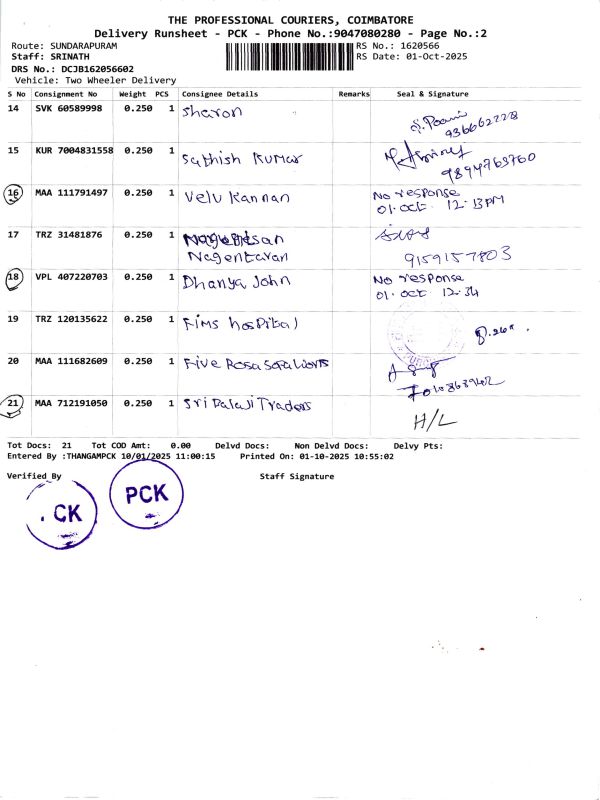 THE PROFESSIONAL COURIERS, COIMBATORE
Delivery Runsheet - PCK - Phone No.:9047080280 - Page No.:2
Route: SUNDARAPURAM RS No.: 1620566
Staff: SRINATH RS Date: 01-Oct-2025
DRS No.: DCJB162056602
Vehicle: Two Wheeler Delivery
S No Consignment No Weight PCS Consignee Details Remarks Seal & Signature
14 SVK 60589998 0.250 1 Sharon
936662228
15 KUR 7004831558 0.250 1 Sathish Kumar
9894763760
16 MAA 111791497 0.250 1 Velu Kannan No response
01.oct 12.13PM
17 TRZ 31481876 0.250 1
Nagentaran 9159157803
18 VPL 407220703 0.250 1 Dhanya John No response
01.oct 12.34
19 TRZ 120135622 0.250 1 Fims hospital
20 MAA 111682609 0.250 1 Five Rosa
21 MAA 712191050 0.250 1 Sri Balaji Traders H/L
Tot Docs: 21 Tot COD Amt: 0.00 Delvd Docs: Non Delvd Docs: Delvy Pts:
Entered By :THANGAMPCK 10/01/2025 11:00:15 Printed On: 01-10-2025 10:55:02
Verified By Staff Signature
. CK PCK